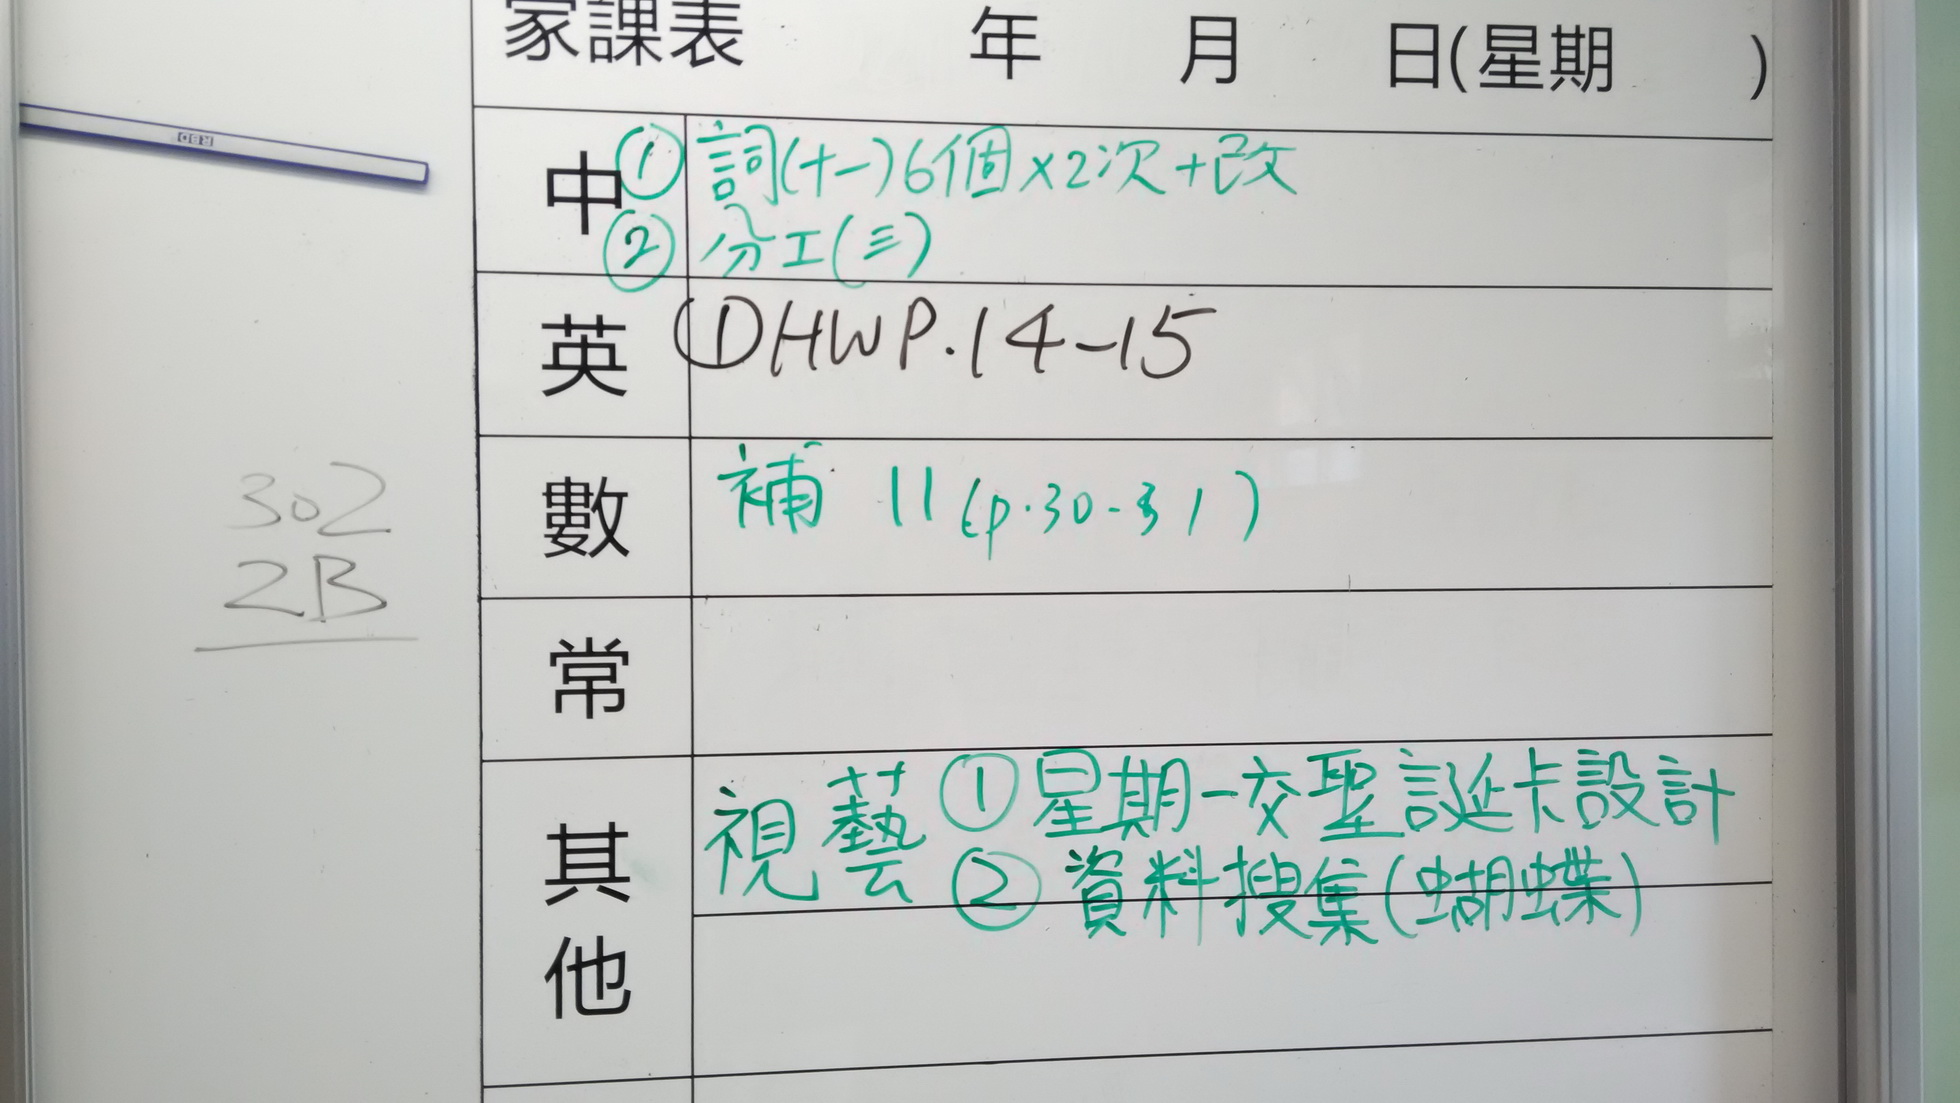 家課表 年 月 日(星期 )
中 ① 詞(十一)6個×2次+改
② 分工(三)
英 ① HW P.14-15
數 補 11 (p.30-31)
302
2B
常
其他 視藝 ① 星期一交聖誕卡設計
② 資料搜集(蝴蝶)